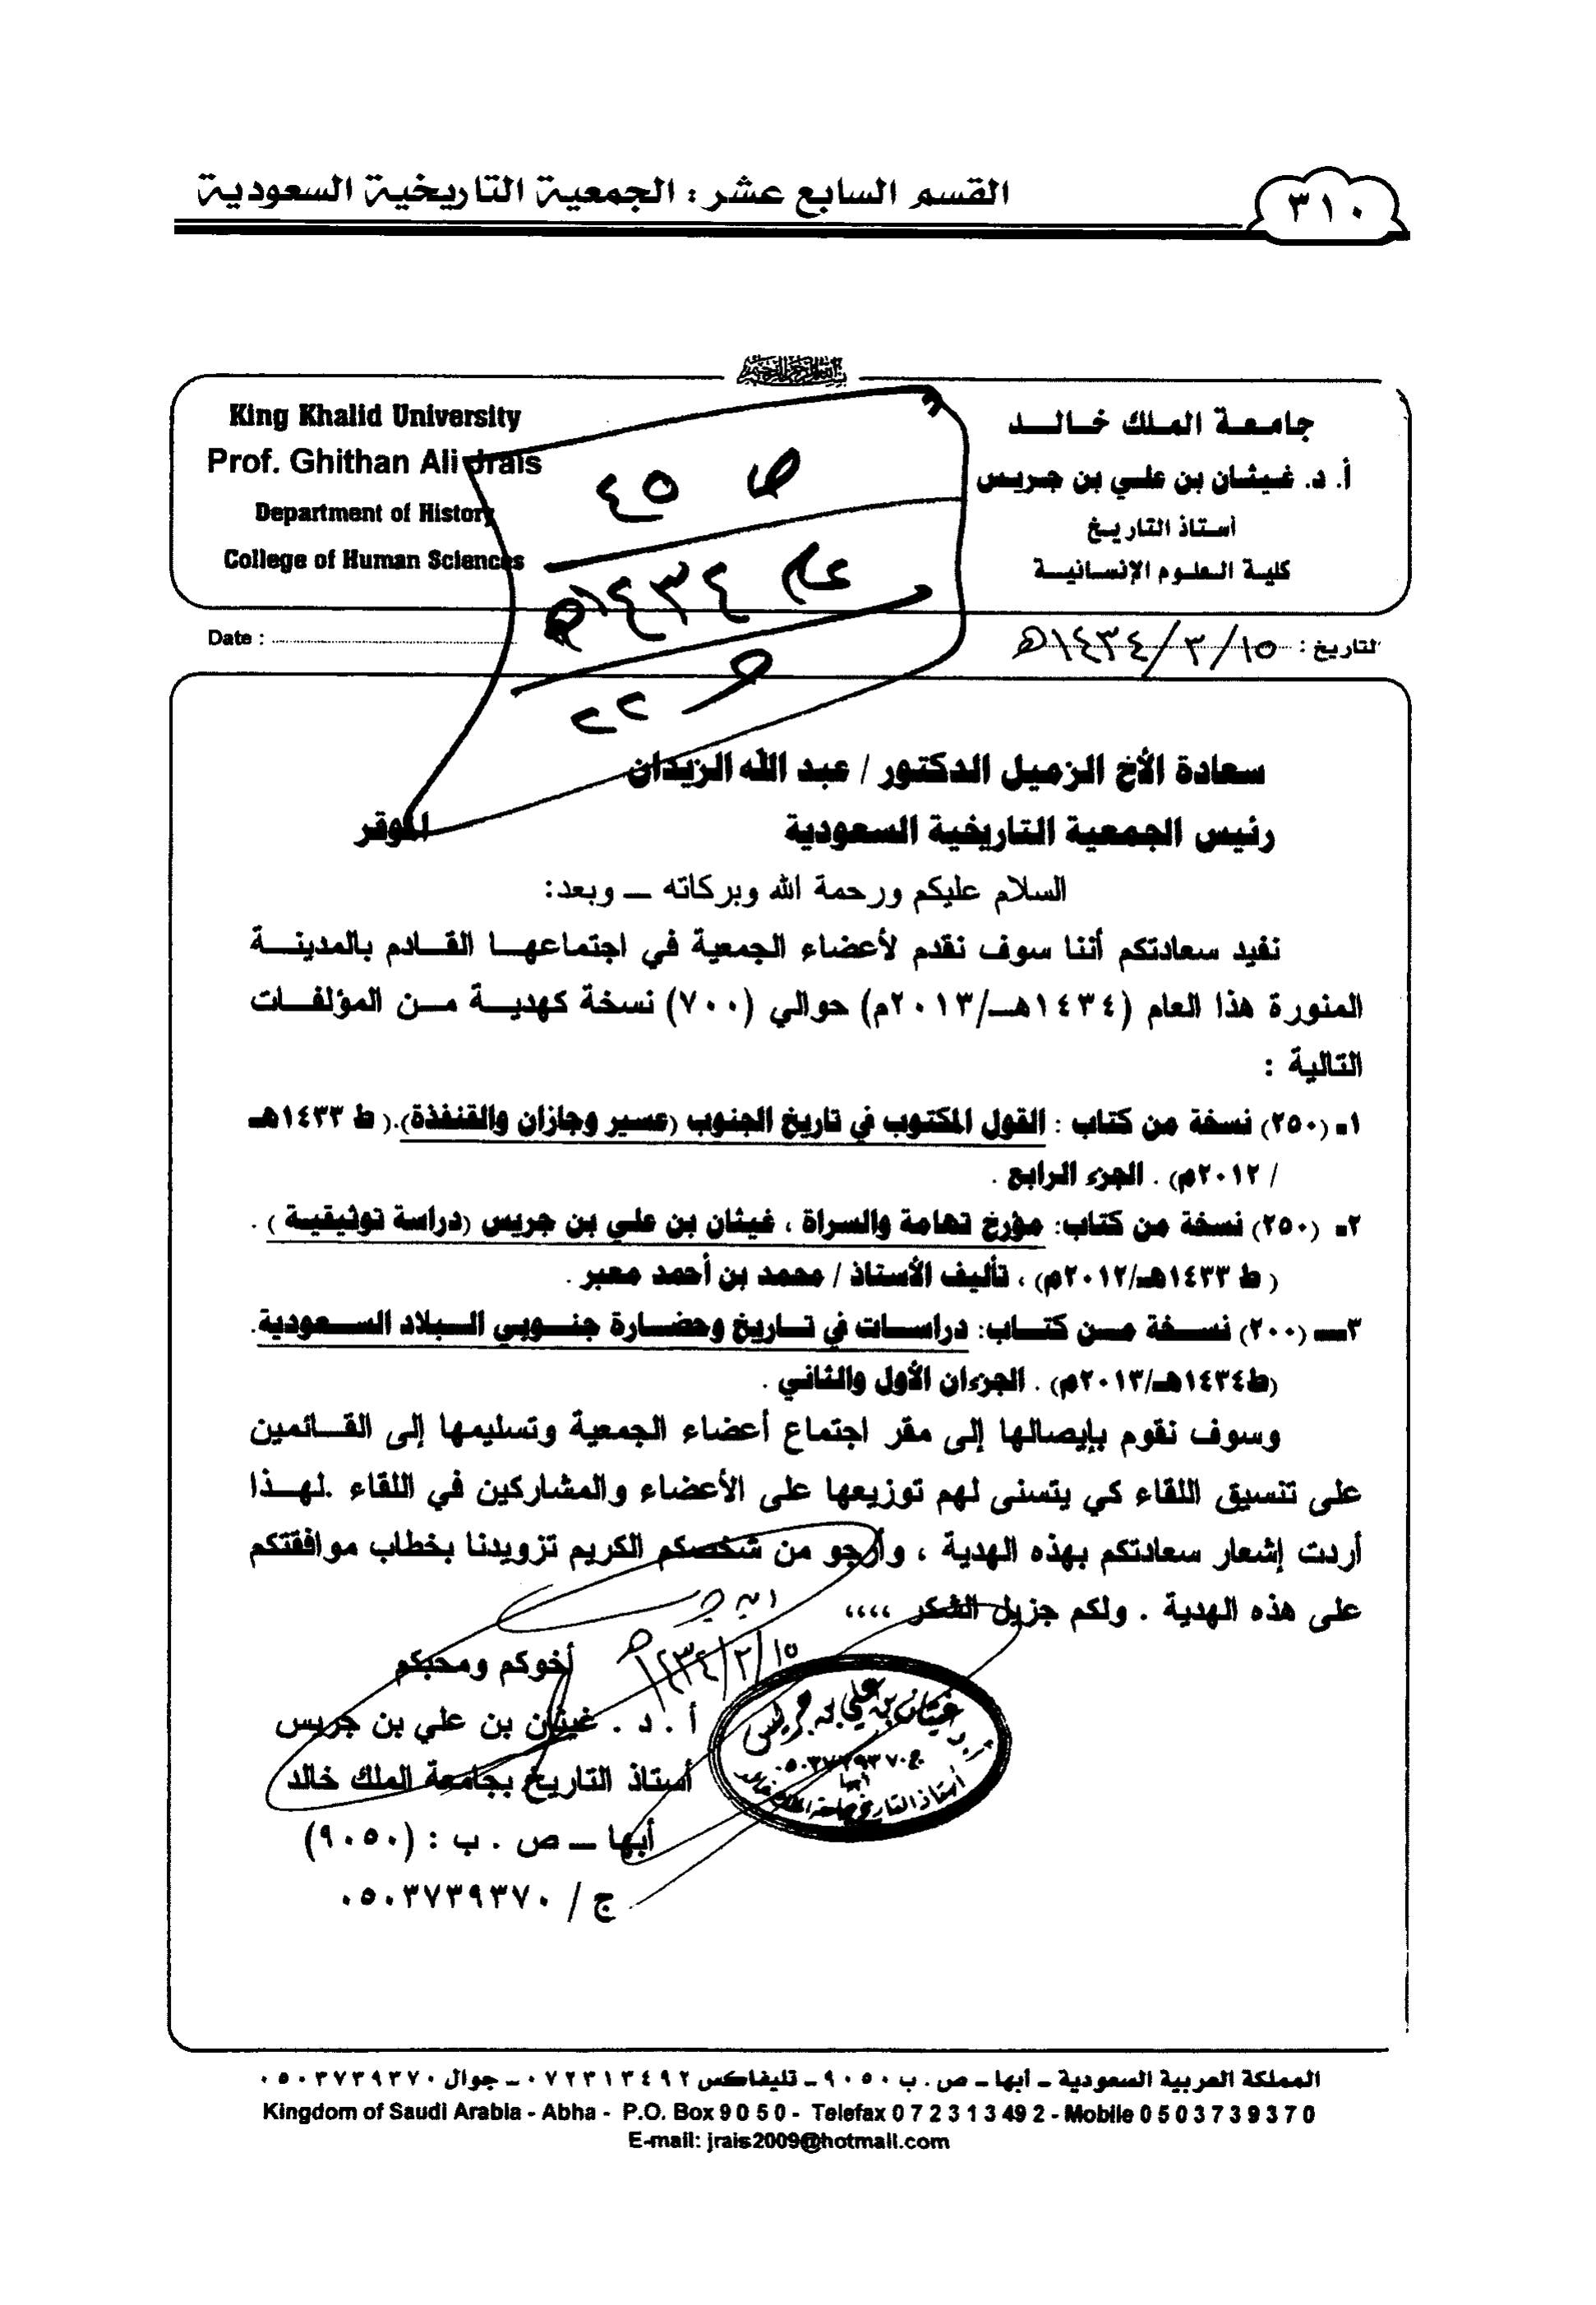 ٣١٠
القسم السابع عشر: الجمعية التاريخية السعودية
جامعة الملك خالد
أ. د. غيثان بن علي بن جريس
أستاذ التاريخ
كلية العلوم الإنسانية
King Khalid University
Prof. Ghithan Ali Jrais
Department of History
College of Human Sciences
ص ٤٥
عام ١٤٣٤هـ
٢٢
التاريخ : ١٥/٣/١٤٣٤هـ
Date :
سعادة الأخ الزميل الدكتور / عبد الله الزيدان
رئيس الجمعية التاريخية السعودية الموقر
السلام عليكم ورحمة الله وبركاته ــ وبعد:
نفيد سعادتكم أننا سوف نقدم لأعضاء الجمعية في اجتماعها القادم بالمدينة
المنورة هذا العام (١٤٣٤هـ/٢٠١٣م) حوالي (٧٠٠) نسخة كهدية من المؤلفات
التالية :
١ـ (٢٥٠) نسخة من كتاب : القول المكتوب في تاريخ الجنوب (عسير وجازان والقنفذة).( ط ١٤٣٣هـ
/ ٢٠١٢م) . الجزء الرابع .
٢ـ (٢٥٠) نسخة من كتاب: مؤرخ تهامة والسراة ، غيثان بن علي بن جريس (دراسة توثيقية ) .
( ط ١٤٣٣هـ/٢٠١٢م) ، تأليف الأستاذ / محمد بن أحمد معبر .
٣ــ (٢٠٠) نسخة من كتاب: دراسات في تاريخ وحضارة جنوبي البلاد السعودية.
(ط١٤٣٤هـ/٢٠١٣م) . الجزءان الأول والثاني .
وسوف نقوم بإيصالها إلى مقر اجتماع أعضاء الجمعية وتسليمها إلى القائمين
على تنسيق اللقاء كي يتسنى لهم توزيعها على الأعضاء والمشاركين في اللقاء .لهذا
أردت إشعار سعادتكم بهذه الهدية ، وأرجو من شخصكم الكريم تزويدنا بخطاب موافقتكم
على هذه الهدية . ولكم جزيل الشكر ،،،،
١٥/٣/١٤٣٤هـ
أخوكم ومحبكم
أ . د . غيثان بن علي بن جريس
أستاذ التاريخ بجامعة الملك خالد
أبها ــ ص . ب : (٩٠٥٠)
ج / ٠٥٠٣٧٣٩٣٧٠
غيثان بن علي بن جريس
ج ٠٥٠٣٧٣٩٣٧٠
أبها
أستاذ التاريخ بجامعة الملك خالد
المملكة العربية السعودية ـ أبها ـ ص. ب ٩٠٥٠ ـ تليفاكس ٠٧٢٣١٣٤٩٢ ـ جوال ٠٥٠٣٧٣٩٣٧٠
Kingdom of Saudi Arabia - Abha - P.O. Box 9 0 5 0 - Telefax 0 7 2 3 1 3 49 2 - Mobile 0 5 0 3 7 3 9 3 7 0
E-mail: jrais2009@hotmail.com